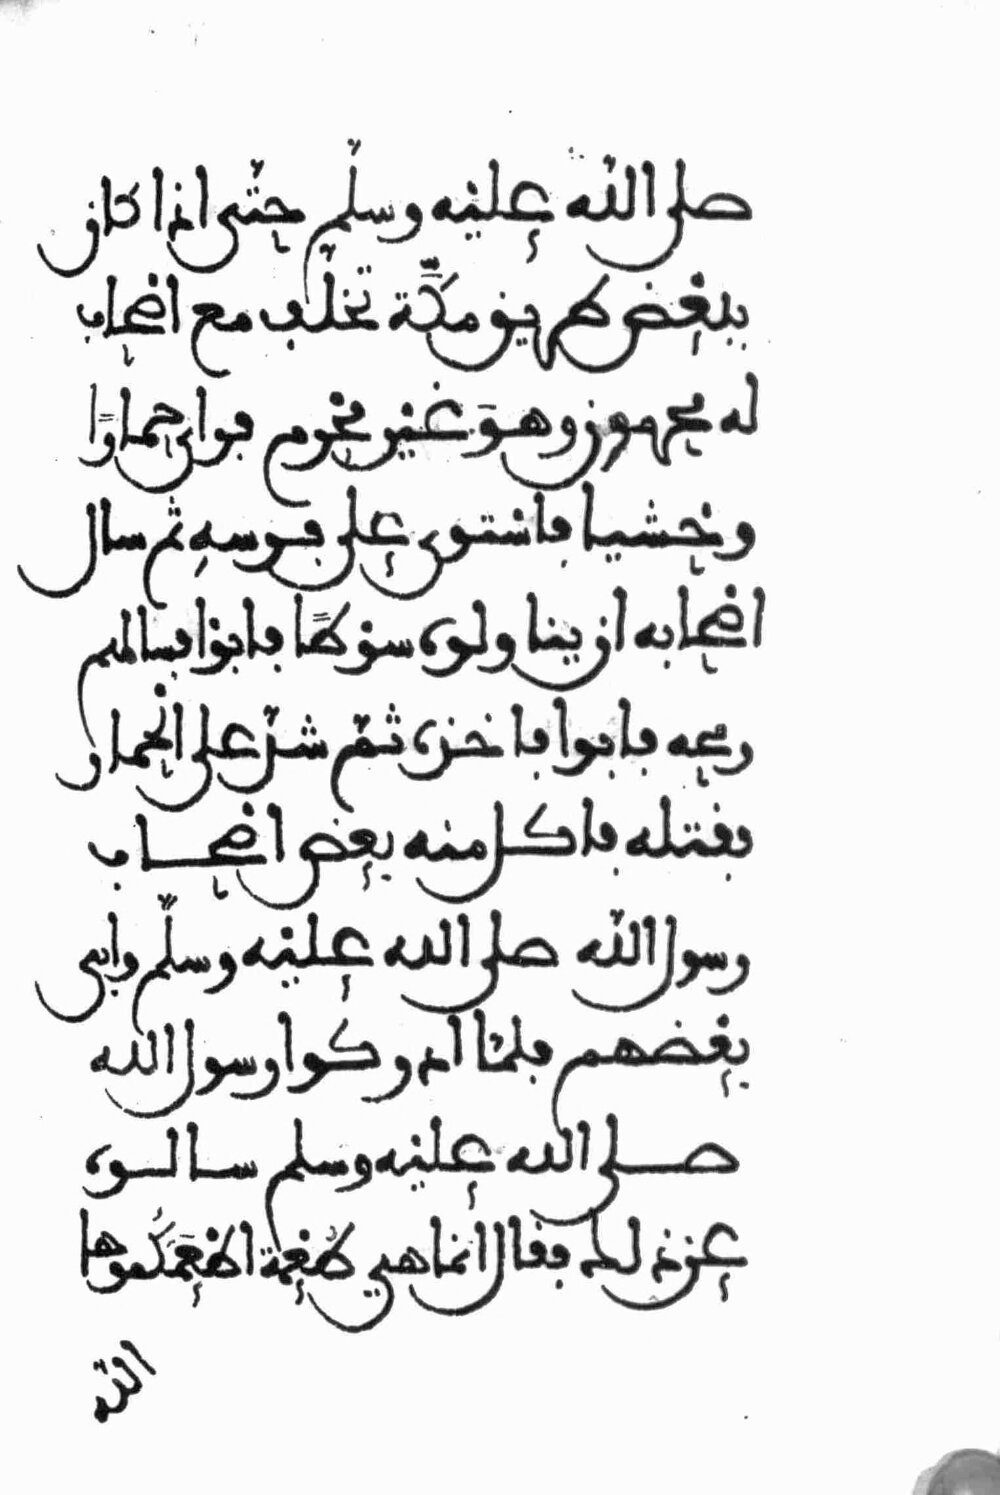 صلى الله عليه وسلم حتى اذا كان
ببعض طريق مكة تخلف مع اصحاب
له محرمين وهو غير محرم فراى حمارا
وحشيا فاستوى على فرسه ثم سال
اصحابه ان يناولوه سوطا فابوا فسالهم
رمحه فابوا فاخذه ثم شد على الحمار
فقتله فاكل منه بعض اصحاب
رسول الله صلى الله عليه وسلم وابى
بعضهم فلما ادركوا رسول الله
صلى الله عليه وسلم سالوه
عن ذلك فقال انما هي طعمة اطعمكموها
الله